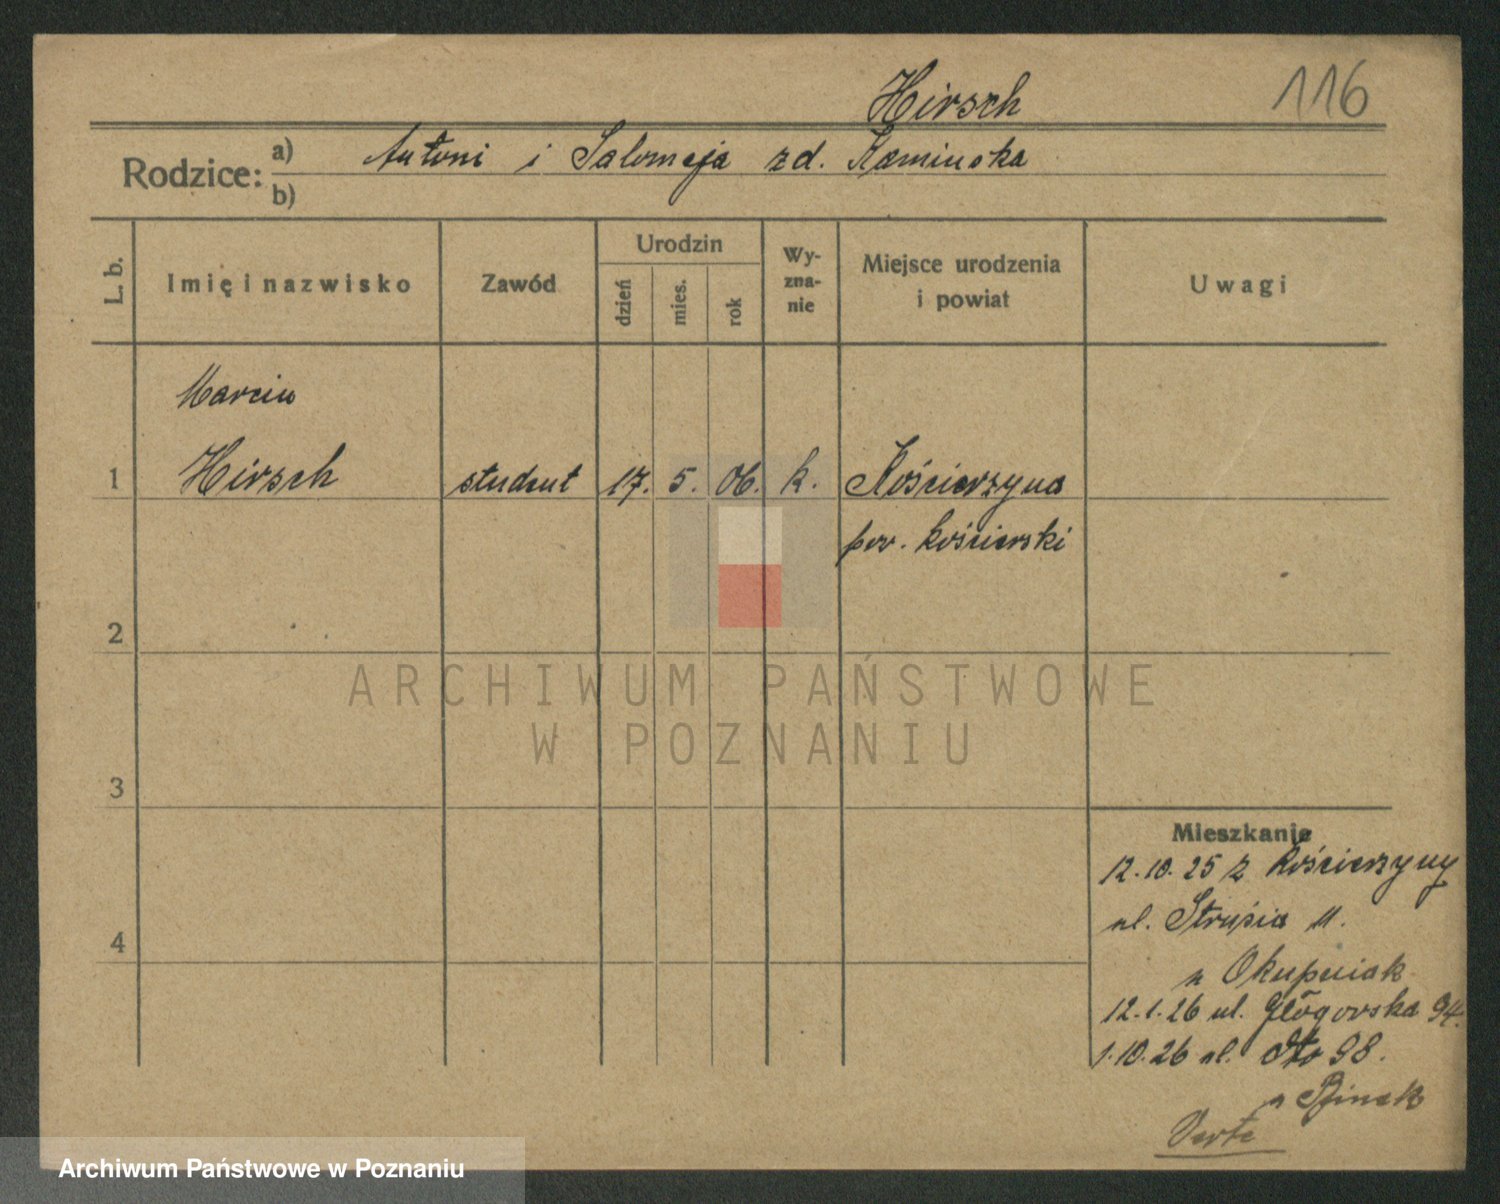 Hirsch
116
Rodzice: a) Antoni i Salomeja zd. Kamińska
b)
L. b.
Imię i nazwisko
Zawód
Urodzin
dzień
mies.
rok
Wy-
zna-
nie
Miejsce urodzenia
i powiat
Uwagi
Marcin
1 Hirsch student 17. 5. 06. k. Kościerzyna
pow. kościerski
2
ARCHIWUM PAŃSTWOWE
W POZNANIU
3
Mieszkanie
12.10.25 z Kościerzyny
ul. Strusia 11.
4
u Okupniak
12.1.26 ul. Głogowska 94.
1.10.26 ul. dto 98.
u Binek
Verte
Archiwum Państwowe w Poznaniu